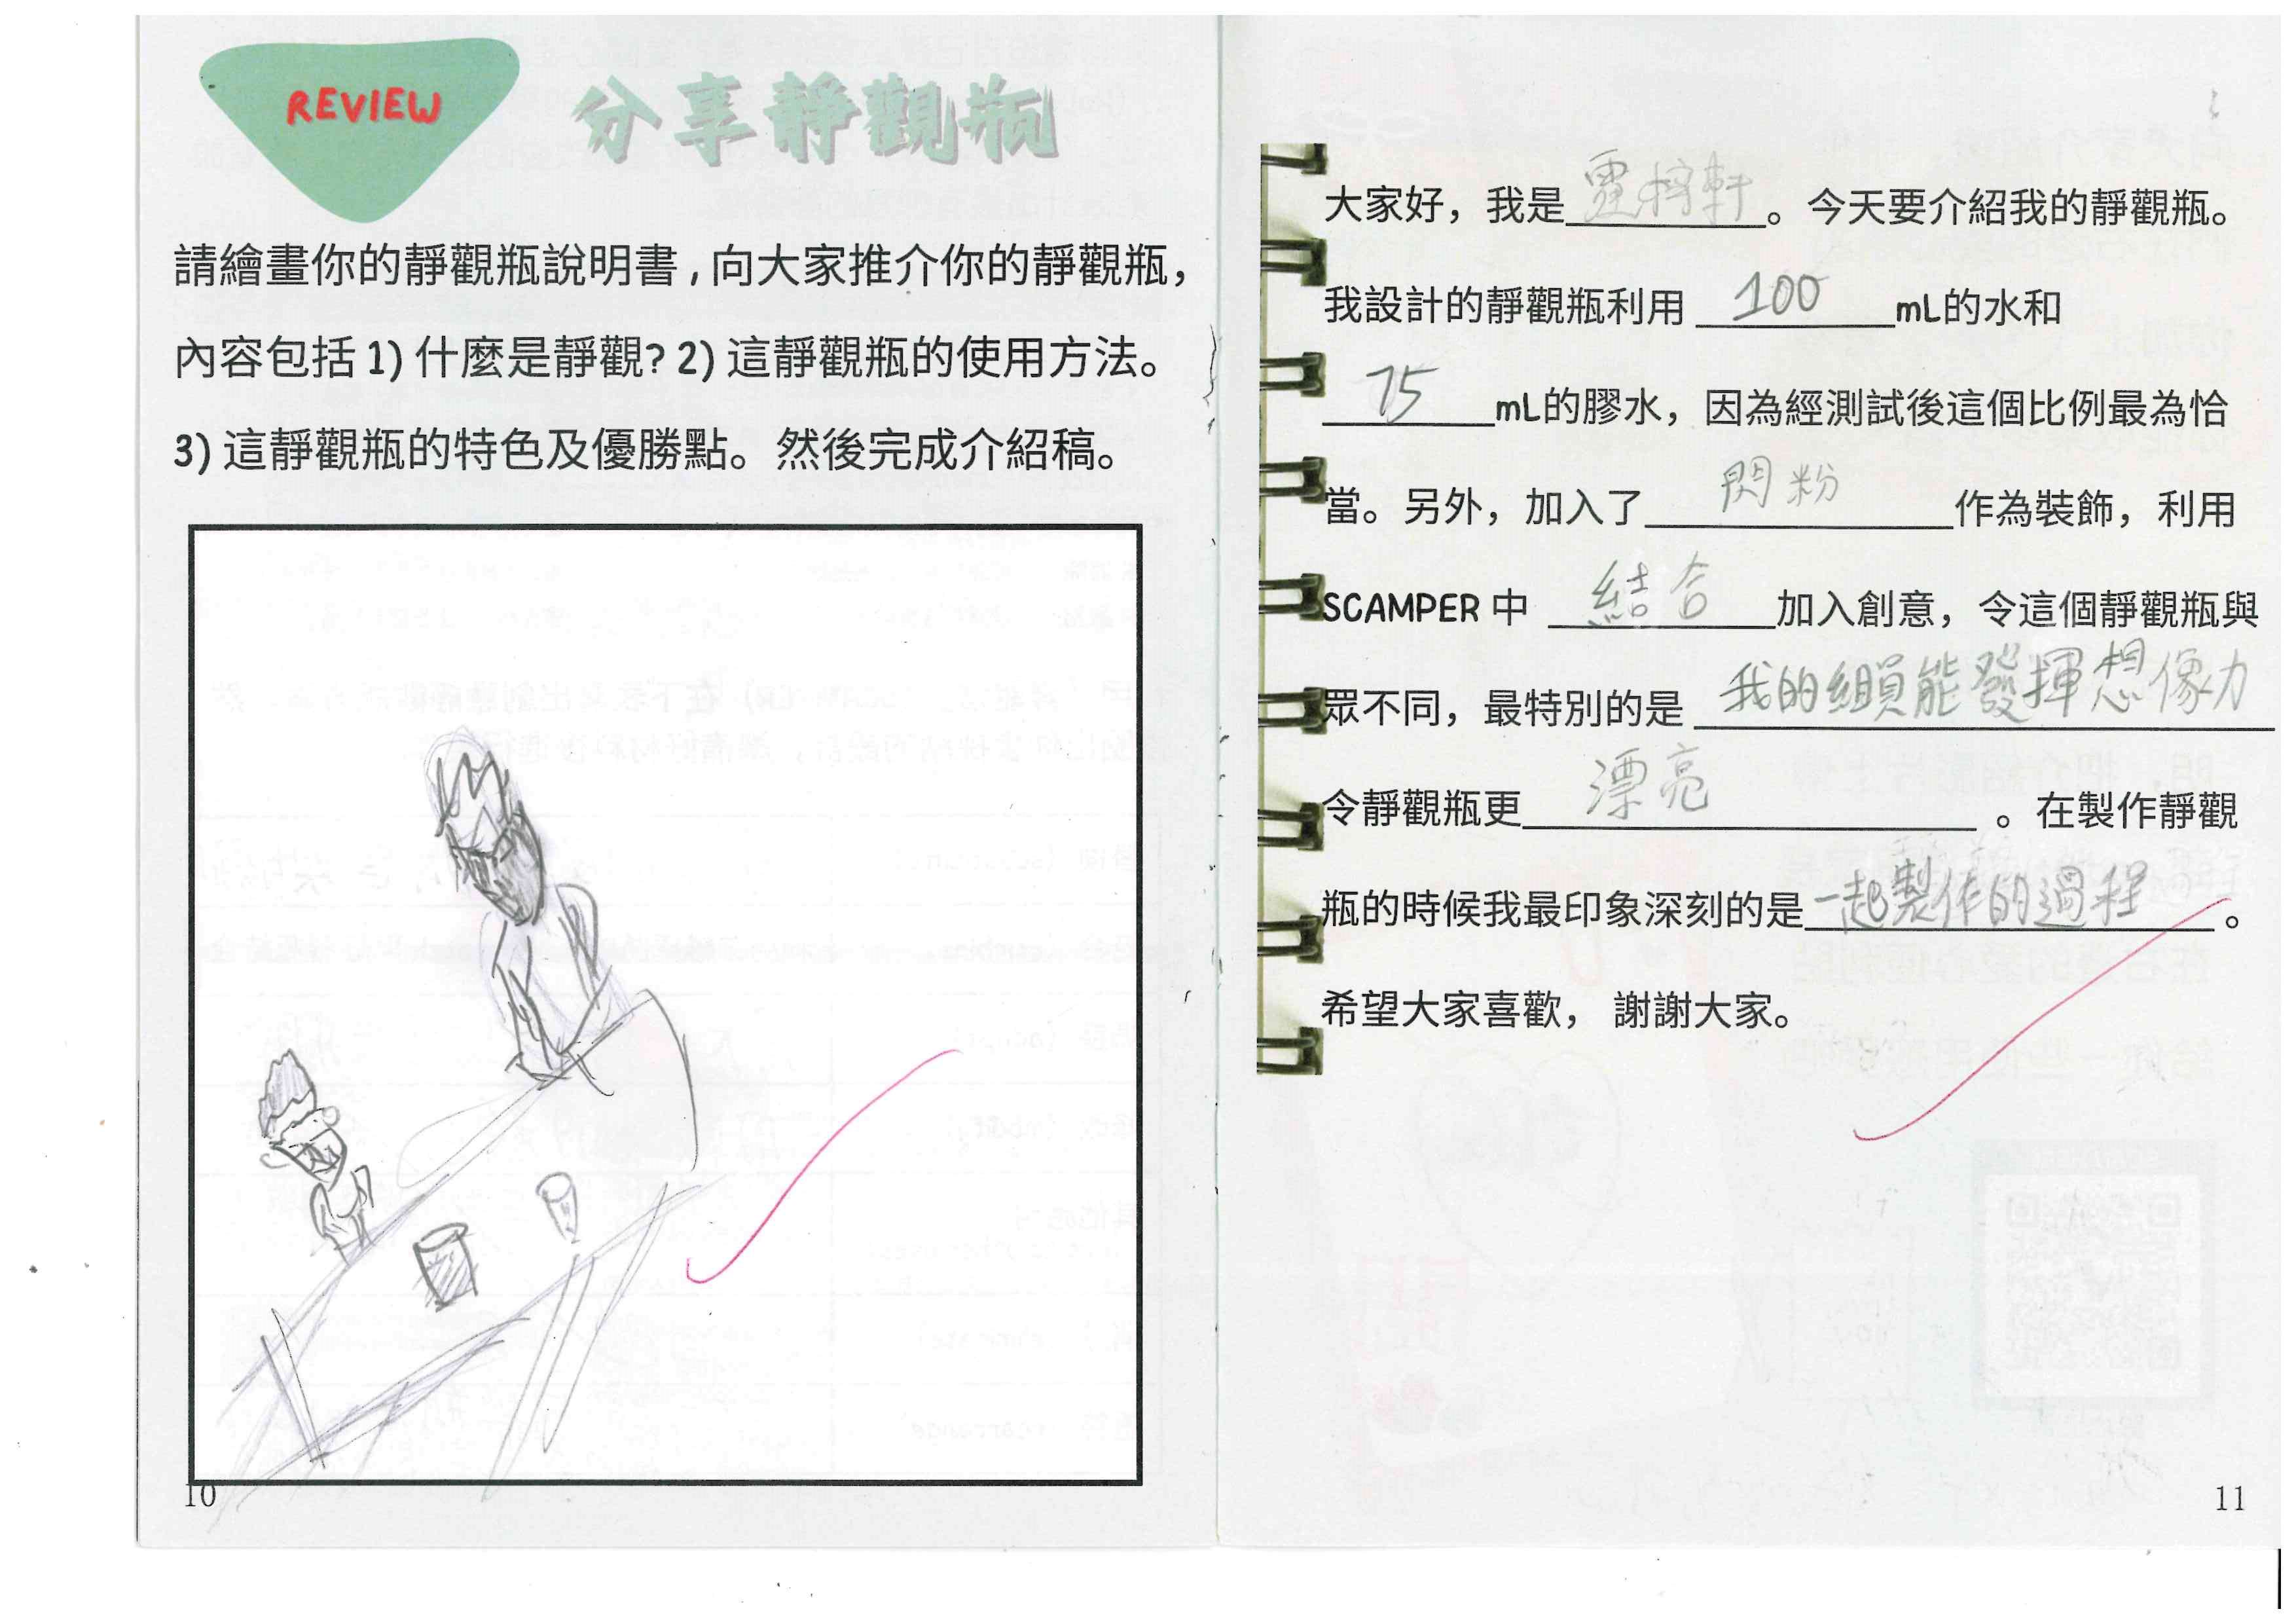 REVIEW
分享靜觀瓶
請繪畫你的靜觀瓶說明書,向大家推介你的靜觀瓶，
內容包括 1) 什麼是靜觀? 2) 這靜觀瓶的使用方法。
3) 這靜觀瓶的特色及優勝點。然後完成介紹稿。
10
大家好，我是 軒。今天要介紹我的靜觀瓶。
我設計的靜觀瓶利用 100 mL的水和
75 mL的膠水，因為經測試後這個比例最為恰
當。另外，加入了 閃粉 作為裝飾，利用
SCAMPER 中 結合 加入創意，令這個靜觀瓶與
眾不同，最特別的是 我的組員能發揮想像力
令靜觀瓶更 漂亮 。在製作靜觀
瓶的時候我最印象深刻的是 一起製作的過程 。
希望大家喜歡， 謝謝大家。
11